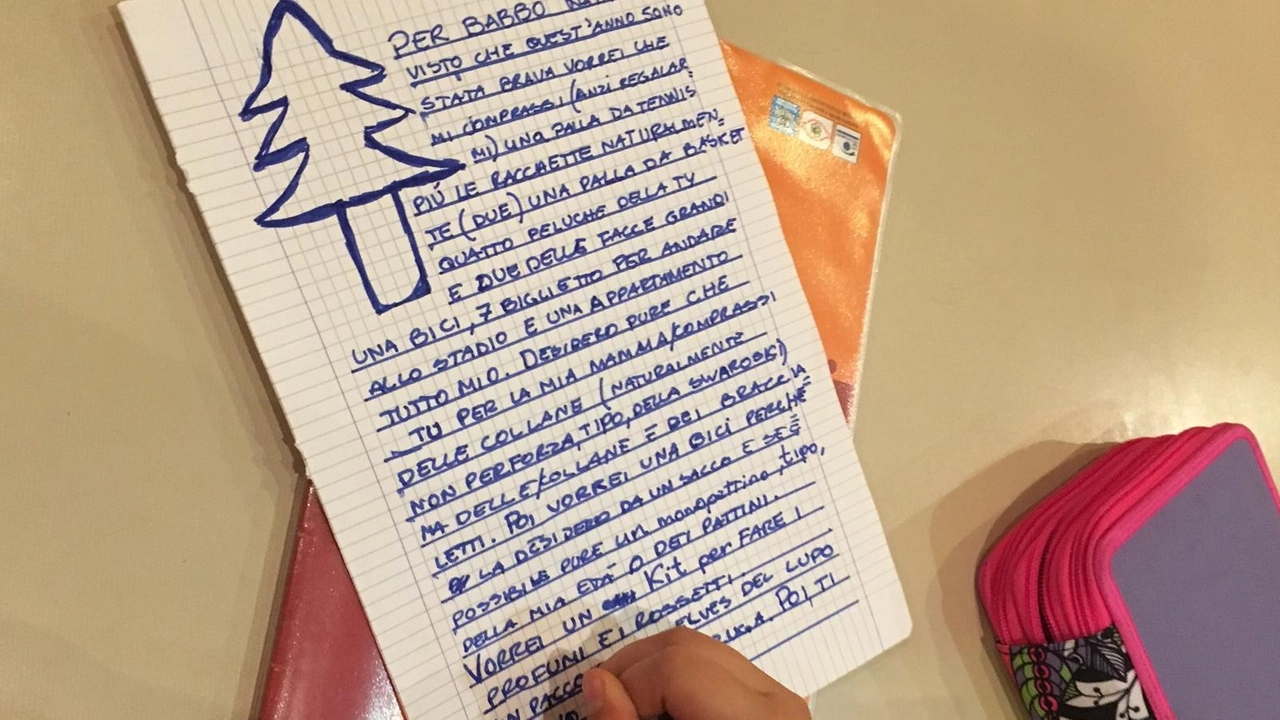 PER BABBO
VISTO CHE QUEST'ANNO SONO
STATA BRAVA VORREI CHE
MI COMPRASSI (ANZI REGALAR
MI) UNA PALLA DA TENNIS
PIÚ LE RACCHETTE NATURALMEN=
TE (DUE) UNA PALLA DA BASKET
QUATTO PELUCHE DELLA TY
E DUE DELLE FACCE GRANDI
UNA BICI, 7 BIGLIETTO PER ANDARE
ALLO STADIO E UNA APPARTAMENTO
TUTTO MIO. DESIDERO PURE CHE
TU PER LA MIA MAMMA COMPRASSI
DELLE COLLANE (NATURALMENTE
NON PERFORZA, TIPO, DELLA SWAROSKI)
MA DELLE COLLANE E DEI BRACCIA
LETTI. POI VORREI UNA BICI PERCHÉ
LA DESIDERO DA UN SACCO E SE È
POSSIBILE PURE UN monopattino, tipo,
DELLA MIA ETÀ O DEI PATTINI.
VORREI UN Kit per FARE I
PROFUMI E I ROSSETTI
UN PACCO ELVES DEL LUPO
POI, TI